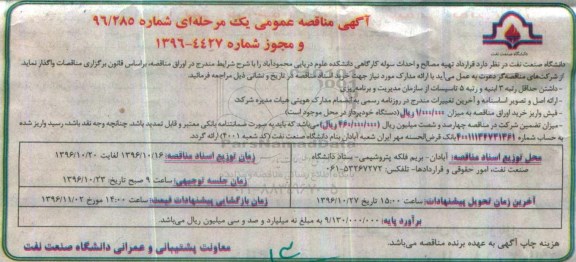 آگهی مناقصه عمومی یک مرحله‌ای شماره ۹۶/۲۸۵
و مجوز شماره ۴۴۲۷-۱۳۹۶
دانشگاه صنعت نفت
دانشگاه صنعت نفت در نظر دارد قرارداد تهیه مصالح و احداث سوله کارگاهی دانشکده علوم دریایی محمودآباد را با شرح شرایط مندرج در اوراق مناقصه، براساس قانون برگزاری مناقصات واگذار نماید.
از شرکت‌های مناقصه‌گر دعوت به عمل می‌آید با ارائه مدارک مورد نیاز جهت خرید اسناد مناقصه در تاریخ و نشانی ذیل مراجعه فرمائید.
- داشتن حداقل رتبه ۳ ابنیه و رتبه ۵ تاسیسات از سازمان مدیریت و برنامه‌ریزی.
- ارائه اصل و تصویر اساسنامه و آخرین تغییرات مندرج در روزنامه رسمی به انضمام مدارک هویتی هیات مدیره شرکت.
- فیش واریز خرید اوراق مناقصه به میزان ۱/۰۰۰/۰۰۰ ریال (دستگاه خودپرداز در محل موجود است).
- میزان تضمین شرکت در مناقصه چهارصد و شصت میلیون ریال (۴۶۰/۰۰۰/۰۰۰ ریال) می‌باشد که باید به صورت ضمانتنامه بانکی معتبر و قابل تمدید باشد. چنانچه وجه نقد باشد، رسید واریز شده
به حساب شماره ۴۰۰۱۱۱۳۴۲۳۱۳۶۱ بانک قرض‌الحسنه مهر ایران شعبه آبادان بنام دانشگاه صنعت نفت (کد شعبه ۴۰۰۱) ارائه گردد.
محل توزیع اسناد مناقصه: آبادان - بریم فلکه پتروشیمی - ستاد دانشگاه
صنعت نفت، امور حقوقی و قراردادها- تلفکس: ۵۳۲۶۷۲۷۲-۰۶۱
زمان توزیع اسناد مناقصه: ۱۳۹۶/۱۰/۱۶ لغایت ۱۳۹۶/۱۰/۲۰
زمان جلسه توجیهی: ساعت ۹ صبح تاریخ ۱۳۹۶/۱۰/۲۳
آخرین زمان تحویل پیشنهادات: ساعت ۱۵:۰۰ تاریخ ۱۳۹۶/۱۰/۲۷
زمان بازگشایی پیشنهادات قیمت: ساعت ۱۴:۰۰ مورخ ۱۳۹۶/۱۱/۰۲
برآورد پایه: ۹/۱۳۰/۰۰۰/۰۰۰ به مبلغ نه میلیارد و صد و سی میلیون ریال می‌باشد.
هزینه چاپ آگهی به عهده برنده مناقصه می‌باشد.
معاونت پشتیبانی و عمرانی دانشگاه صنعت نفت